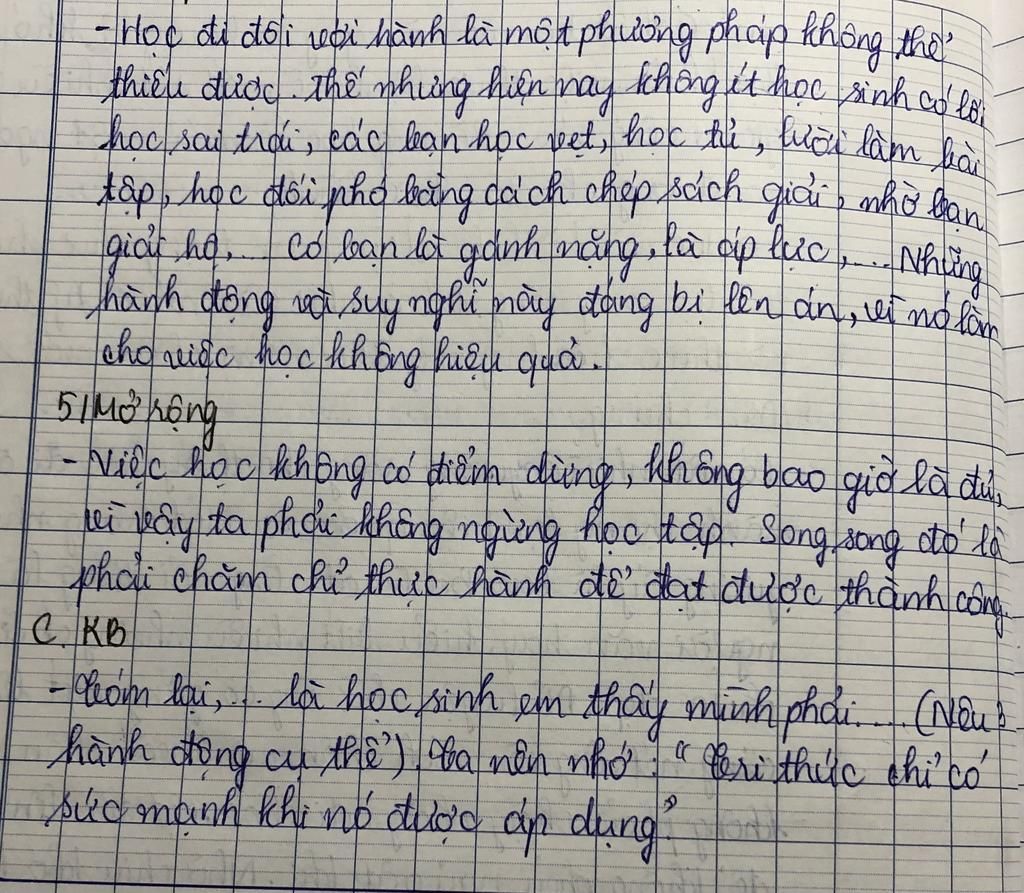 - Học đi đôi với hành là một phương pháp không thể
thiếu được. Thế nhưng hiện nay không ít học sinh có lối
học sai trái, các bạn học vẹt, học tủ, lười làm bài
tập, học đối phó bằng cách chép sách giải, nhờ bạn
giải hộ,... Có bạn là gánh nặng, là áp lực,... Những
hành động và suy nghĩ này đáng bị lên án, vì nó làm
cho việc học không hiệu quả.
5/ Mở rộng
- Việc học không có điểm dừng, không bao giờ là đủ,
vì vậy ta phải không ngừng học tập. Song song đó là
phải chăm chỉ thực hành để đạt được thành công.
C. KB
- Tóm lại,... là học sinh em thấy mình phải.... (Nêu
hành động cụ thể). Ta nên nhớ: "Tri thức chỉ có
sức mạnh khi nó được áp dụng"